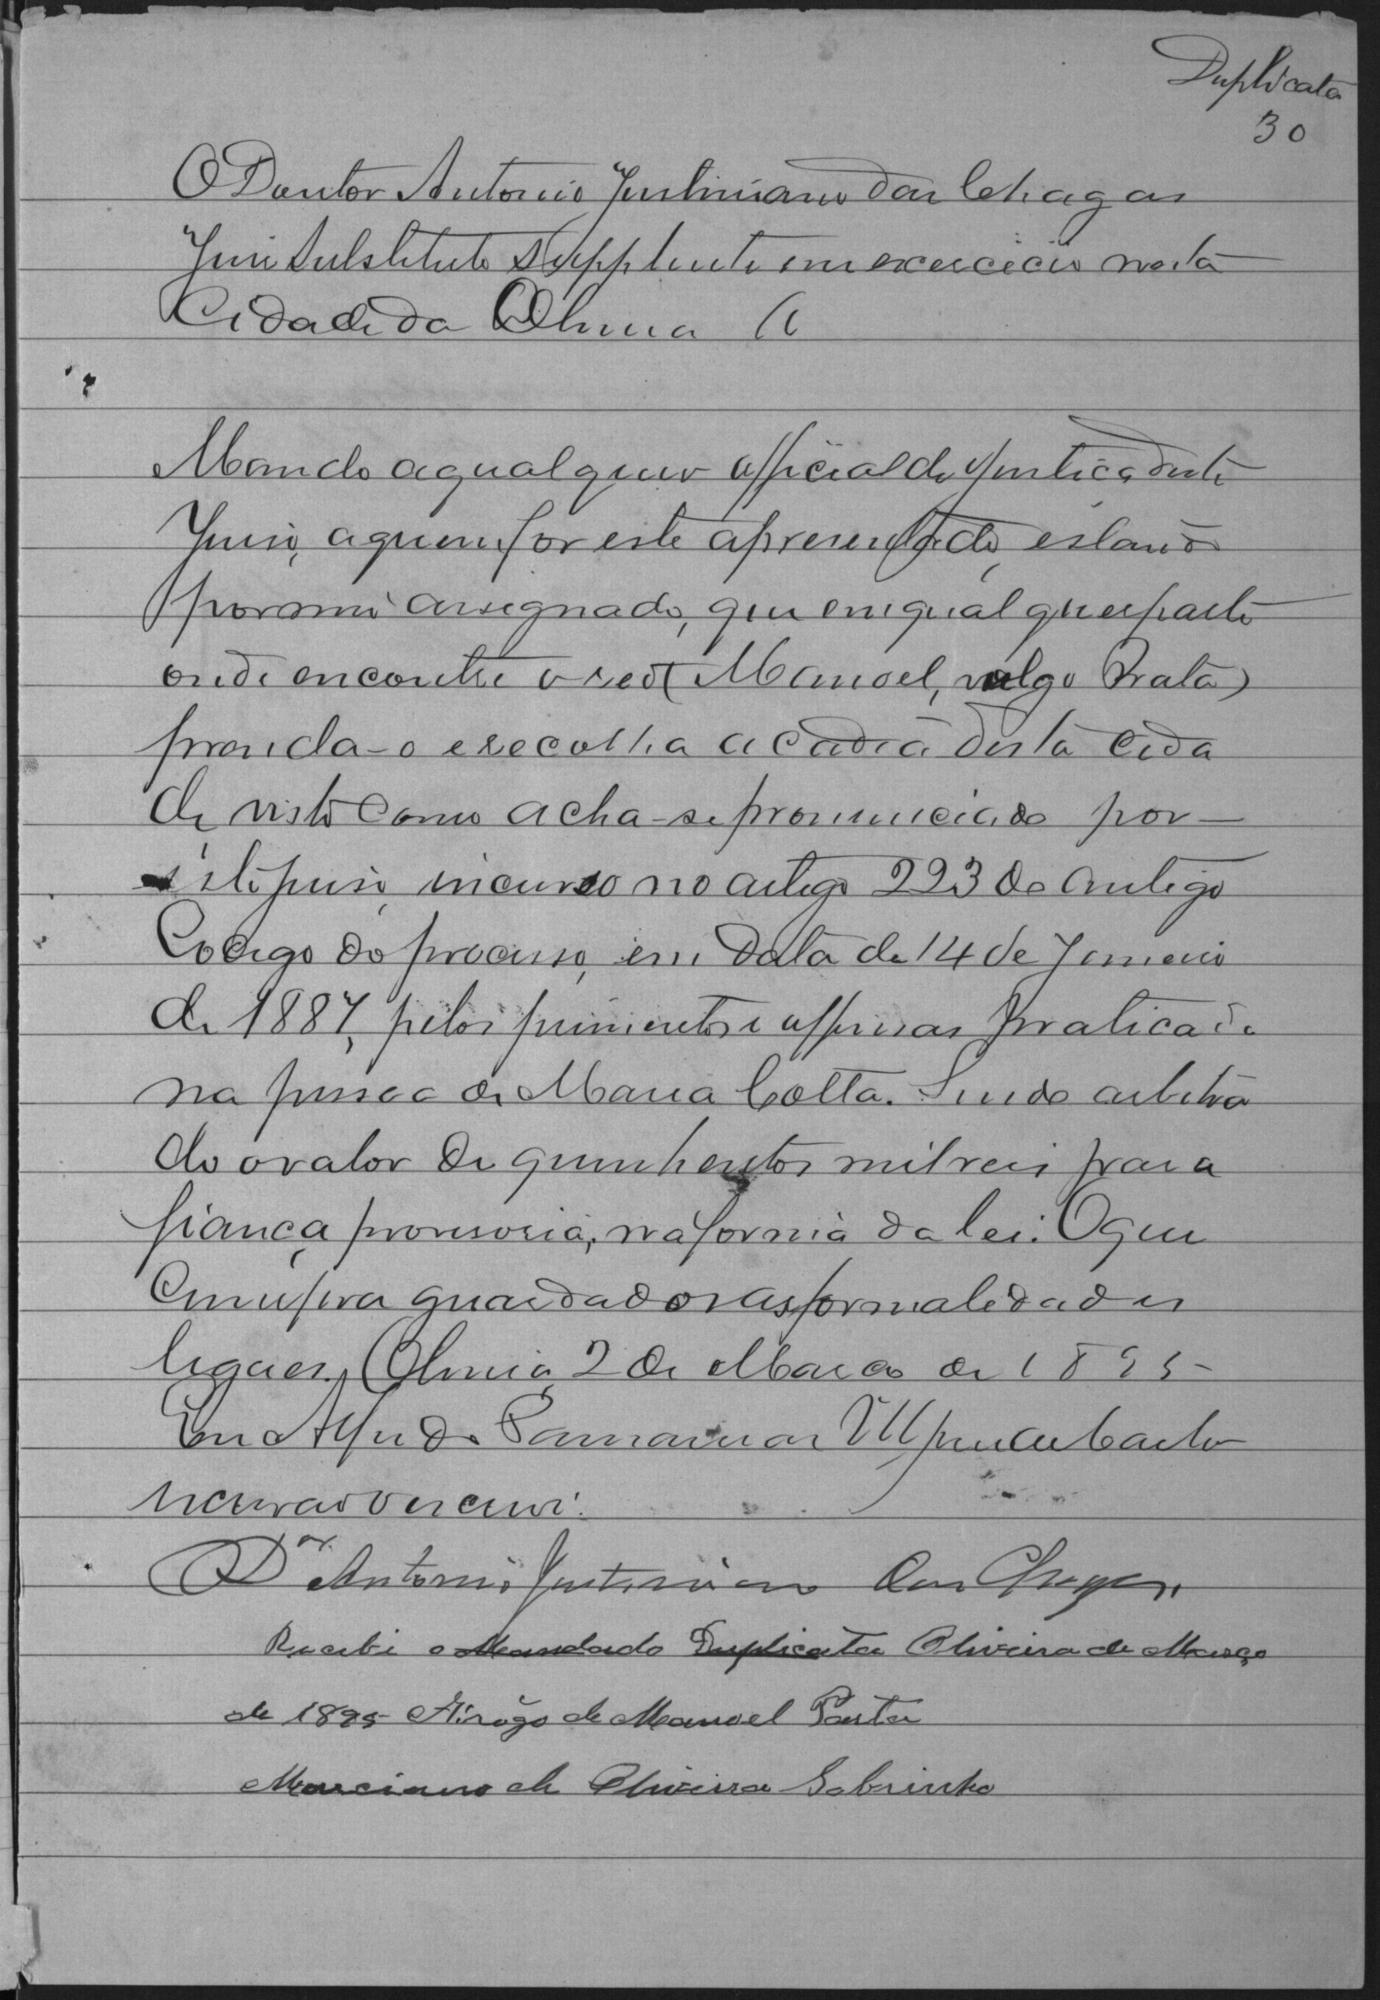 Duplicata
30
O Doutor Antonio Justiniano das Chagas
Juis Substituto Supplente em exercicio nesta
Cidade da Oliveira &
Mando a qualquer official de Justiça deste
Juiso, a quem for este apresentado, estando
por mim assignado, que em qualquer parte
onde encontre o reo (Manoel, vulgo Prata)
prenda-o e recolha a cadea desta cida
de visto como acha-se pronunciado por
este juiso, incurso no artigo 223 do antigo
Codigo do processo, em data de 14 de Janeiro
de 1887, pelos ferimentos e offensas praticado
na pessoa de Maria Cotta. Sendo arbitra
do o valor de quinhentos mil reis para
fiança provisoria, na forma da lei. O que
cumpra guardado as formalidades
legaes. Oliveira, 2 de Março de 1895
Eu Alfredo
escrivão o escrevi.
O Dr Antonio Justiniano das Chagas.
Recebi o Mandado Duplicata Oliveira de Março
de 1895 A rogo de Manoel
Marciano de Oliveira Sobrinho